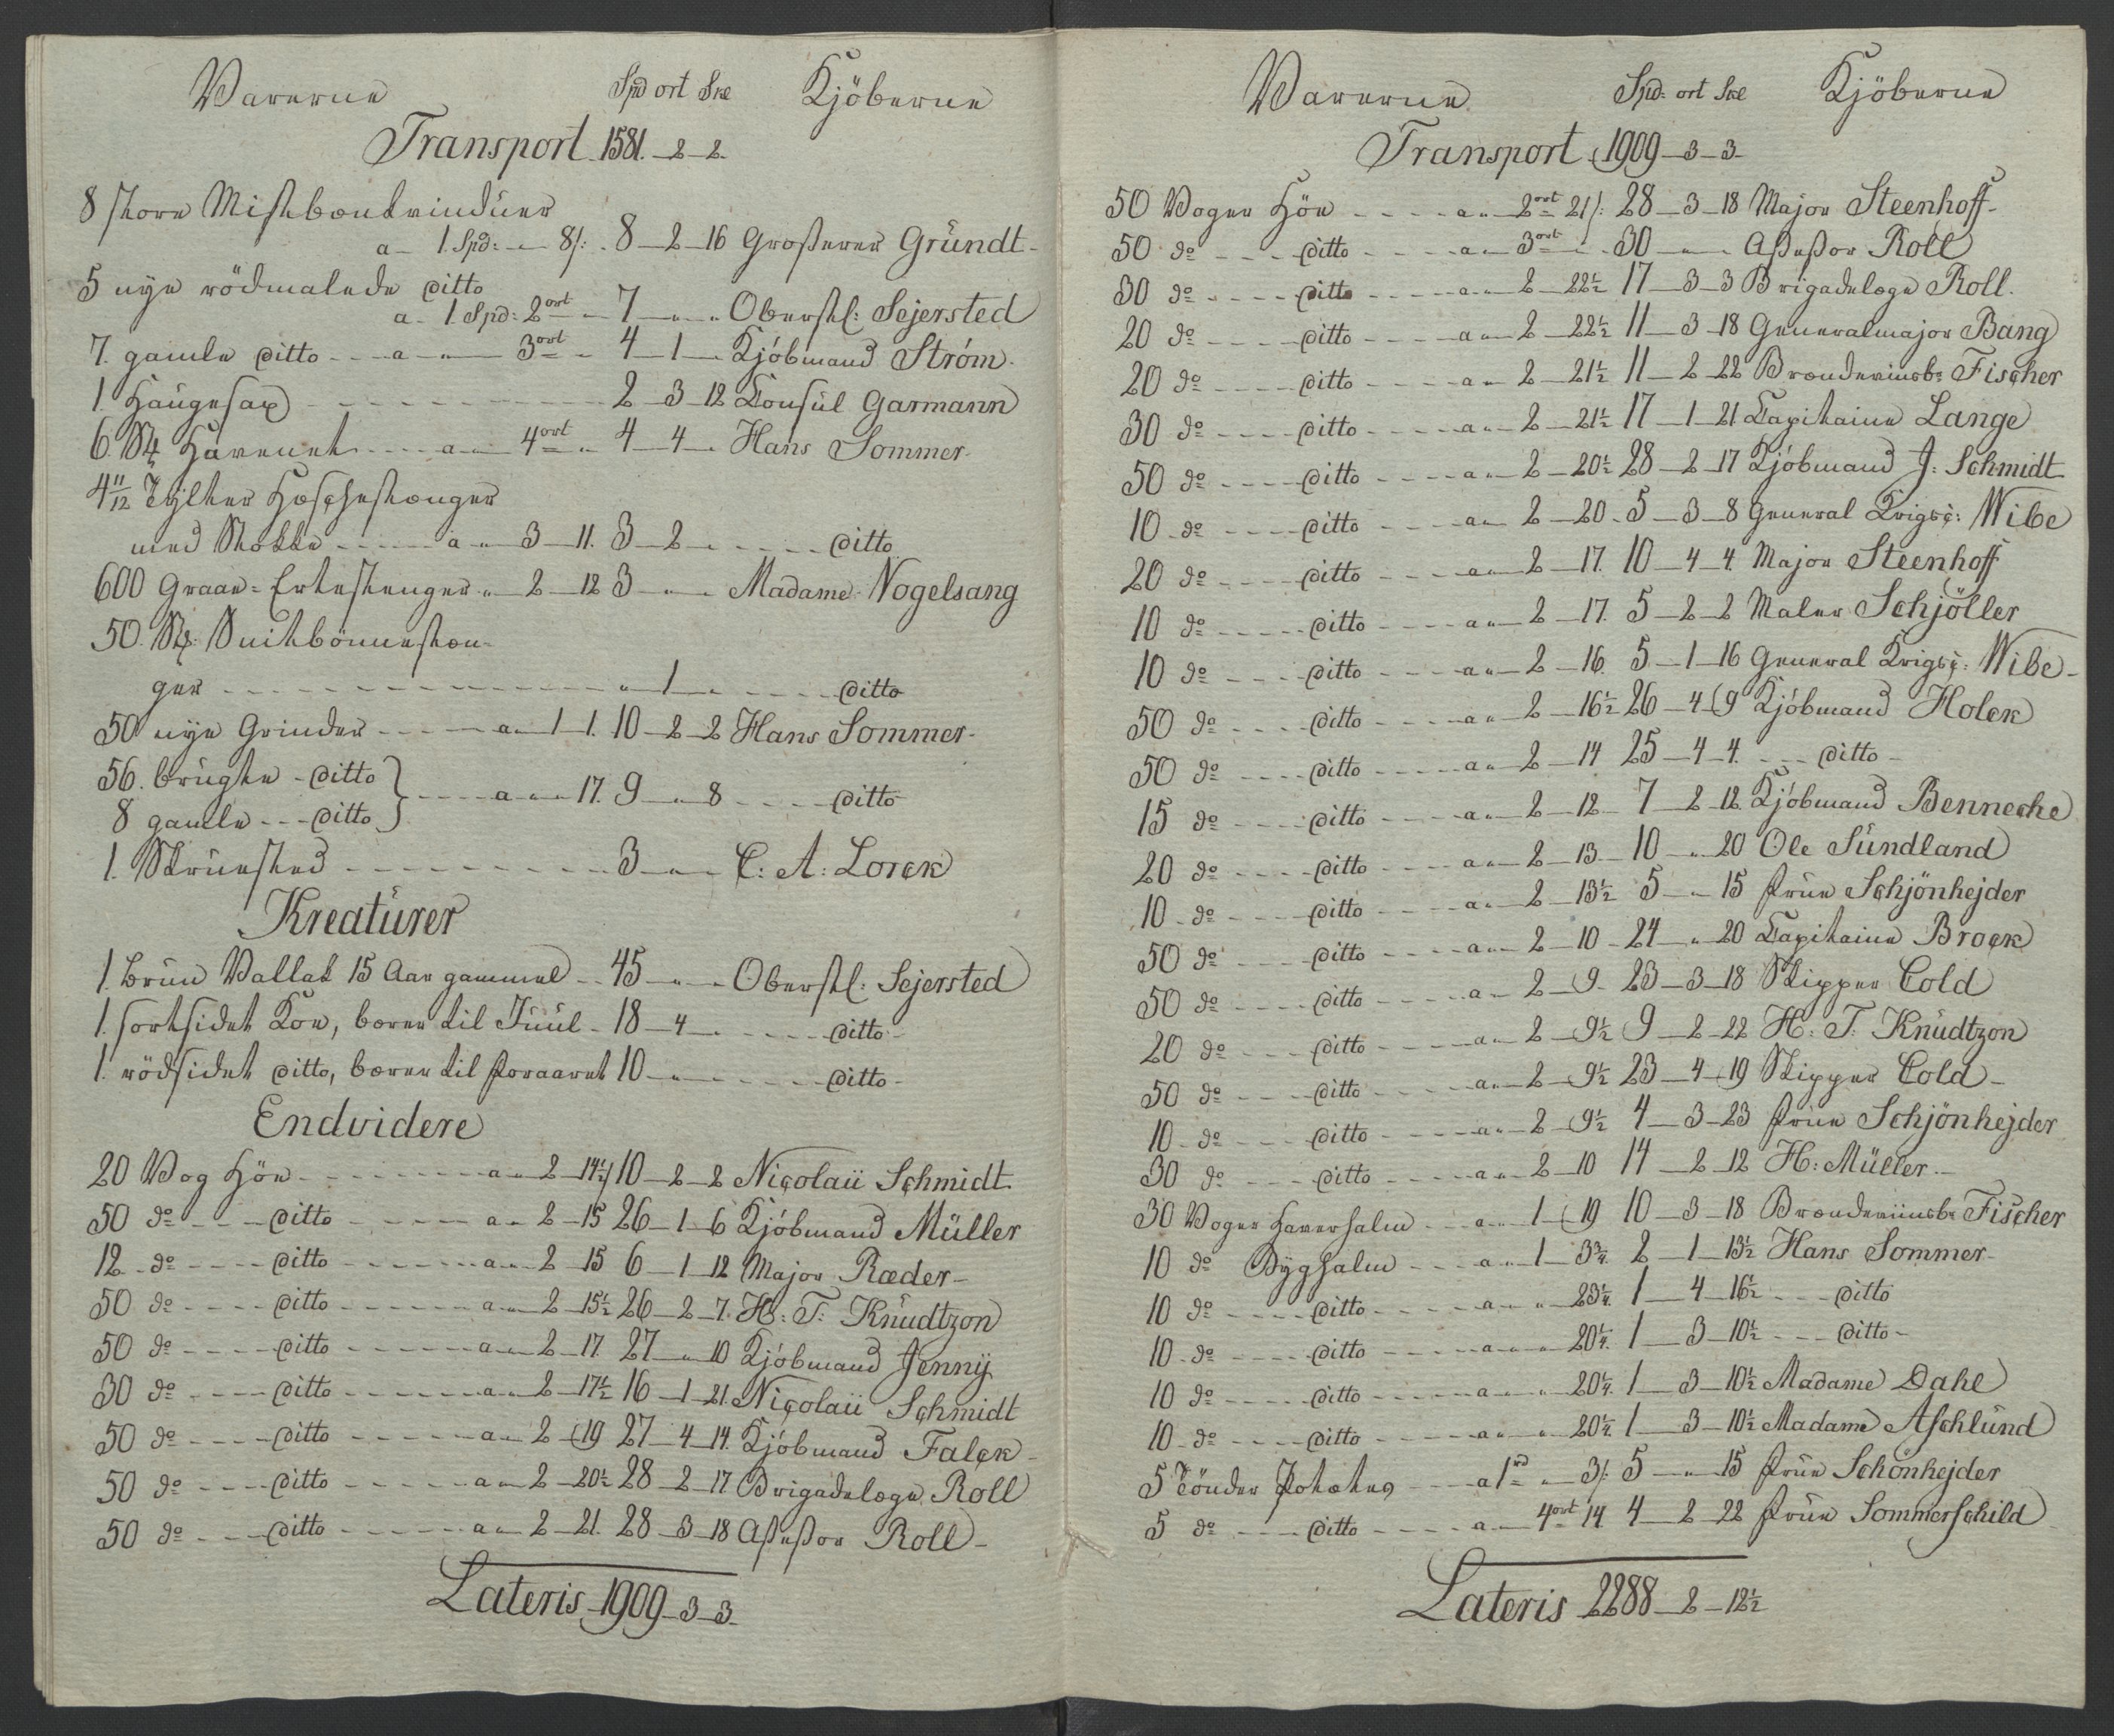 Varerne Spd ort Sk Kjöberne
Transport 1581. _ 2 _ 2.
8 store Mistbænkvinduer
a _ 1 Spd: _ „ _ 8 s: 8 _ 2 _ 16 Grosserer Gründt _
5 nye rödmalede ditto
a _ 1 Spd: 2 ort _ „ 7 _ „ _ „ Oberstl: Sejersted
7. gamle ditto - - - a _ „ _ 3 ort _ „ 4 _ 1 _ „ Kjöbmand Ström.
1. Haugesax - - - - - - 2 _ 3 _ 12 Consül Garmann
6. Stk Havenet - - - - a _ „ _ 4 ort „ 4 _ 4 _ „ Hans Sommer.
4 11/12 Tylter Hæsjestænger
med Stokke - - - - - a _ „ _ 3 _ 11. 3 _ 2 _ „ - - - - ditto
600 Graae-Ertestenger „ _ 2 _ 12 3 _ „ _ „ Madame Vogelsang
50. Stk: Snitbönnestæn-
ger - - - - - - - - - - „ _ 1 _ „ - - - - ditto
50 nye Grinder - - - - - a _ „ _ 1 _ 1. 10 _ 2 _ 2 Hans Sommer.
56. brügte - ditto
8 gamle - - - ditto } - - - - a _ „ _ „ _ 17. 9 _ „ _ 8 - - - - ditto
1. Skruested - - - - - - - - 3 _ „ _ „ C: A: Lorck
Kreatürer
1. brun Vallak 15 Aar gammel - - 45 _ „ _ „ Oberstl: Sejersted
1. sortsidet Koe, bærer til Juul - 18 _ 4 _ „ - - - - ditto -
1. rödsidet ditto, bærer til Foraaret 10 _ „ _ „ - - - - ditto -
Endvidere
20 Vog Höe - - - - - - - a _ „ _ 2 _ 14 1/2 10 _ 2 _ 2 Nicolaii Schmidt
50 do - - - ditto - - - - - - a _ „ 2 _ 15 26 _ 1 _ 6 Kjöbmand Müller
12 do - - - - ditto - - - - - - a _ „ _ 2 _ 15 6 _ 1 _ 12 Major Ræder _
50 do - - - - ditto - - - - - - a _ „ _ 2 _ 15 1/2 26 _ 2 _ 7. H: T: Knüdtzon
50 do - - - - ditto - - - - - - a _ „ _ 2 _ 17. 27 _ „ _ 10 Kjöbmand Jenny
30 do - - - - ditto - - - - - - a _ „ _ 2 _ 17 1/2 16 _ 1 _ 21. Nicolaii Schmidt
50 do - - - - ditto - - - - - - a _ „ 2 _ 19 27 _ 4 _ 14. Kjöbmand Falck _
50 do - - - - ditto - - - - - - a _ „ _ 2 _ 20 1/2 28 _ 2 _ 17 Brigadelæge Roll
50 do - - - ditto - - - - - - a _ „ _ 2 _ 21. 28 _ 3 _ 18 Assessor Roll _
Lateris 1909 _ 3 _ 3 _
Varerne Spd: ort Sk Kjöberne
Transport 1909 _ 3 _ 3 _
50 Voger Höe - - - - a _ „ _ 2 ort 21 s: 28 _ 3 _ 18 Major Steenhoff _
50 do - - - - ditto - - - - a _ „ _ 3 ort „ 30 _ „ _ „ Assessor Roll
30 do - - - - ditto - - - - a _ „ _ 2 _ 22 1/2 17 _ 3 _ 3 Brigadelæge Roll.
20 do - - - - ditto - - - - a _ „ _ 2 _ 22 1/2 11 _ 3 _ 18 Generalmajor Bang
20 do - - - - ditto - - - - a _ „ 2 _ 21 1/2 11 _ 2 _ 22 Brændeviinsbr Fischer
30 do - - - - ditto - - - - a _ „ _ 2 _ 21 1/2 17 _ 1 _ 21 Capitaine Lange
50 do - - - - ditto - - - - a _ „ _ 2 _ 20 1/2 28 _ 2 _ 17 Kjöbmand J: Schmidt
10 do - - - - ditto - - - - a _ „ 2 _ 20 5 _ 3 _ 8 General Krigsc: Wibe
20 do - - - - ditto - - - - a _ „ _ 2 _ 17. 10 _ 4 _ 4. Major Steenhoff
10 do - - - - ditto - - - - a _ „ _ 2 _ 17. 5 _ 2 _ 2 Maler Schjöller
10 do - - - - ditto - - - - a _ „ _ 2 _ 16. 5 _ 1 _ 16 General Krigsc: Wibe _
50 do - - - - ditto - - - - a _ „ 2 _ 16 1/2 26 _ 4 _ 9 Kjöbmand Holck
50 do - - - - ditto - - - - a _ „ _ 2 _ 14 25 _ 4 _ 4. - - - ditto -
15 do - - - - ditto - - - - a _ „ _ 2 _ 12 7 _ 2 _ 12 Kjöbmand Bennecke
20 do - - - - ditto - - - - a _ „ _ 2 _ 13 10 _ „ _ 20 Ole Sündland
10 do - - - - ditto - - - - a _ „ _ 2 _ 13 1/2 5 _ „ _ 15 Frue Schjönhejder
50 do - - - - ditto - - - - a _ „ _ 2 _ 10 24 _ „ _ 20 Capitaine Brock
50 do - - - - ditto - - - - a _ „ 2 _ 9 23 _ 3 _ 18 Skipper Cold
20 do - - - - ditto - - - - a _ „ 2 _ 9 1/2 9 _ 2 _ 22 H: T: Knüdtzon
50 do - - - - ditto - - - - a _ „ _ 2 _ 9 1/2 23 _ 4 _ 19 Skipper Cold _
10 do - - - - ditto - - - - a _ „ _ 2 _ 9 1/2 4 _ 3 _ 23 Frue Schjönhejder
30 do - - - - ditto - - - - a _ „ _ 2 _ 10 14 _ 2 _ 12 H: Müller. _
30 Voger Haverhalm - - - a _ „ _ 1 _ 19 10 _ 3 _ 18 Brændeviinsbr Fischer
10 do Byghalm - - - a _ „ _ 1 _ 3 3/4 2 _ 1 _ 13 1/2 Hans Sommer _
10 do - - - - ditto - - - - a _ „ _ „ _ 23 1/4. 1 _ 4 _ 16 1/2 - - - ditto
10 do - - - - ditto - - - - a _ „ _ „ _ 20 1/4. 1 _ 3 _ 10 1/2 - - - ditto -
10 do - - - - ditto - - - - a _ „ _ „ _ 20 1/4. 1 _ 3 _ 10 1/2 Madame Dahl
10 do - - - - ditto - - - - a _ „ _ „ _ 20 1/4. 1 _ 3 _ 10 1/2 Madame Aschlund
5 Tönder Potætes - - - a 1 „ 3 s: 5 _ „ _ 15 Frue Schönhejder
5 do - - - - ditto - - - - a _ „ _ 4 ort 14 4 _ 2 _ 22 Frue Sommerschild
Lateris 2288 _ 2 _ 12 1/2